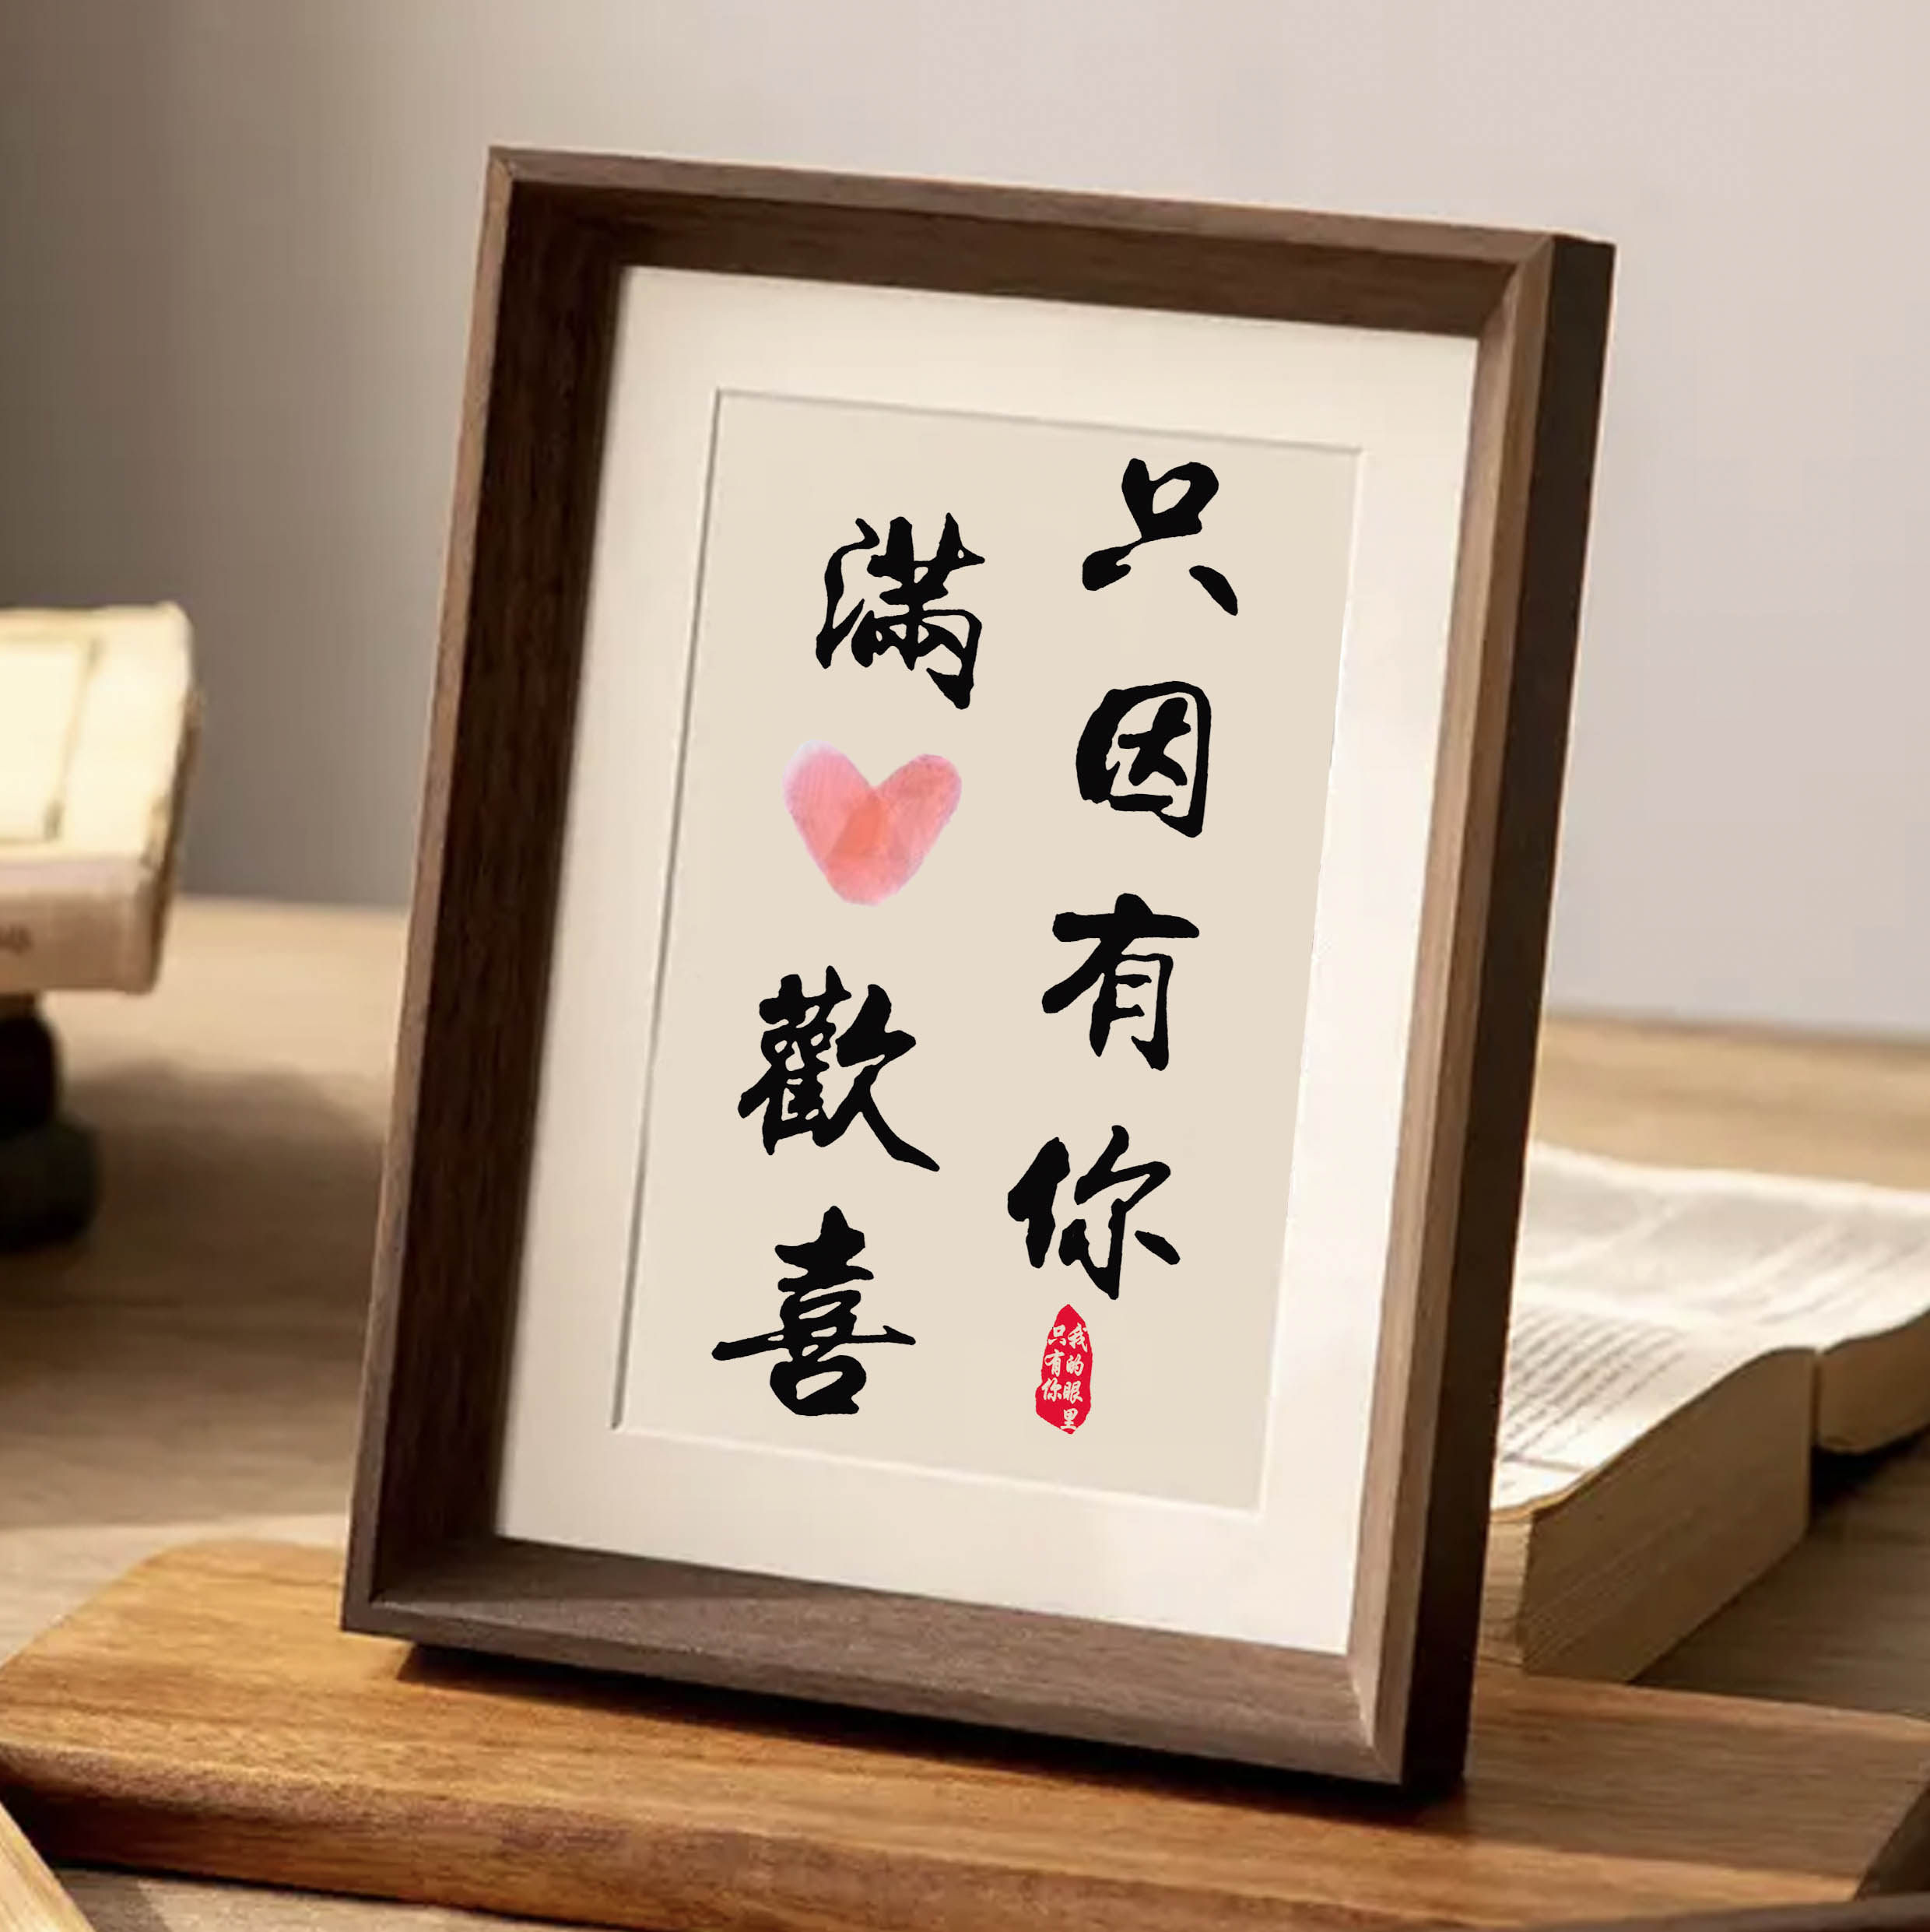 只因有你
滿歡喜
我的眼里
只有你